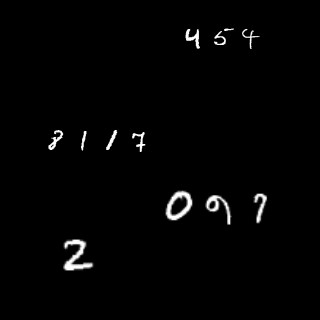 454
8117
097
2